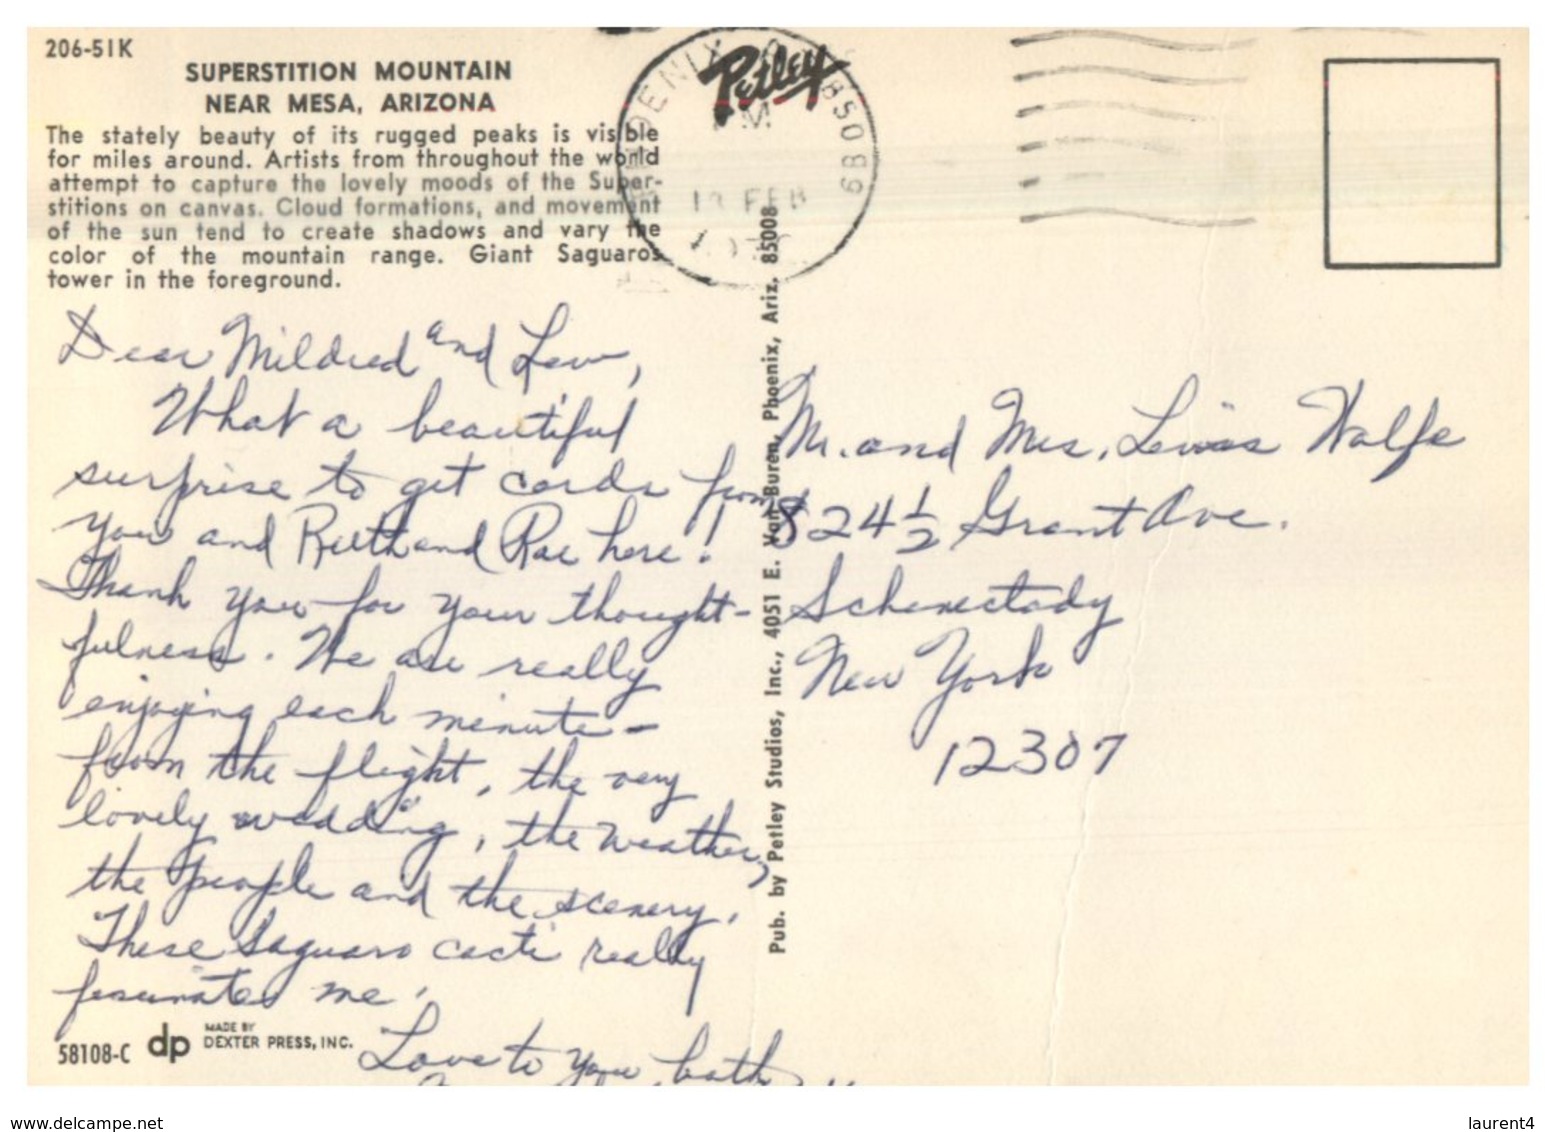 206-51K
SUPERSTITION MOUNTAIN
NEAR MESA, ARIZONA
The stately beauty of its rugged peaks is visible
for miles around. Artists from throughout the world
attempt to capture the lovely moods of the Super-
stitions on canvas. Cloud formations, and movement
of the sun tend to create shadows and vary the
color of the mountain range. Giant Saguaros
tower in the foreground.
Petley
PM
FEB
Dear Mildred and Lew,
What a beautiful
surprise to get cards from
you and Ruth and Rae here!
Thank you for your thought-
fulness. We are really
enjoying each minute -
from the flight, the very
lovely wedding, the weather,
the people and the scenery.
These Saguaro cacti really
fascinated me.
Love to you both
58108-C dp MADE BY
DEXTER PRESS, INC.
Pub. by Petley Studios, Inc., 4051 E. Van Buren, Phoenix, Ariz. 85008
Mr. and Mrs. Lewis Wolfe
824½ Grant Ave.
Schenectady
New York
12307
www.delcampe.net
laurent4